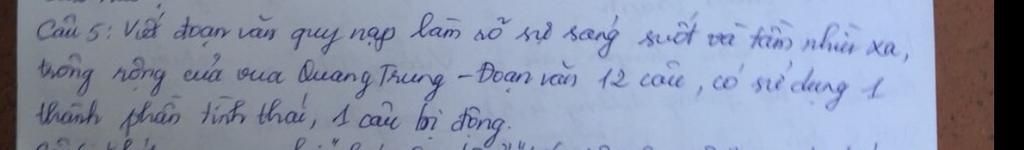 Câu 5: Viết đoạn văn quy nạp làm rõ sự sáng suốt và tầm nhìn xa,
trông rộng của vua Quang Trung - Đoạn văn 12 câu, có sử dụng 1
thành phần tình thái, 1 câu bị động.